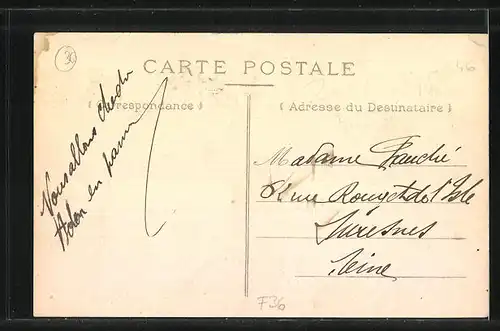 36
CARTE POSTALE
( Correspondance )
( Adresse du Destinataire )
46
Nous allons
en panne
Madame
Rue Rouget de l'Isle
Suresnes
Seine
F36